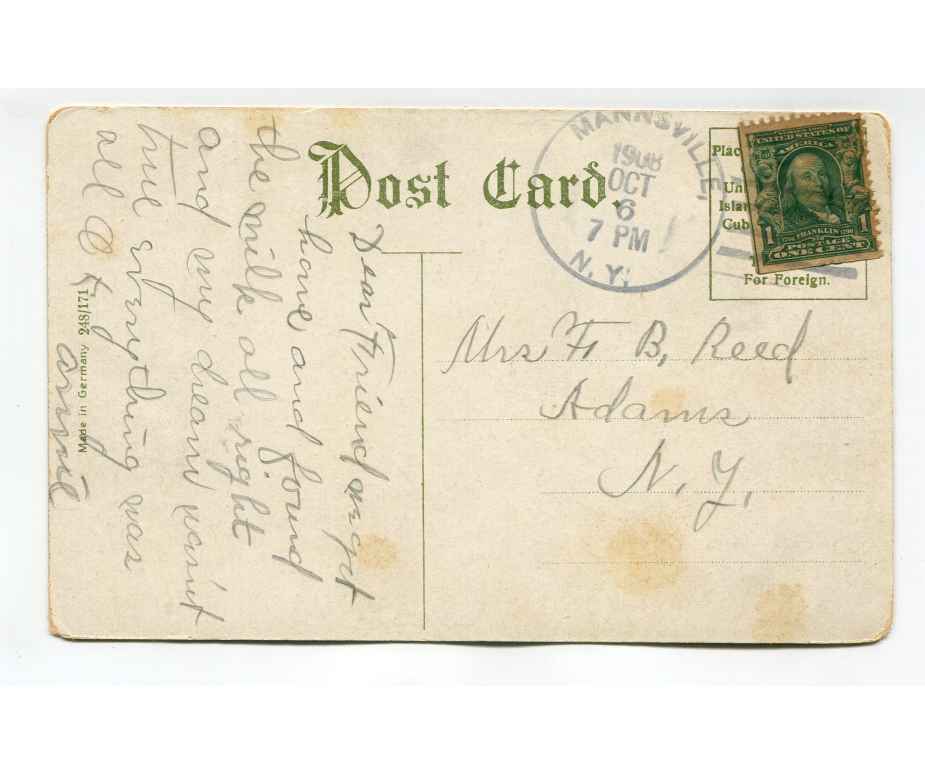 Post Card.
MANNSVILLE,
1908
OCT
6
7 PM
N.Y.
Plac
Un
Islan
Cub
For Foreign.
UNITED STATES OF
AMERICA
1 FRANKLIN 1
POSTAGE
ONE CENT
Mrs F B, Reed
Adams
N. Y,
Dear Friend
home and found
the milk all right
and my dream wasnt
true everything was
all O K
Made in Germany 248/171